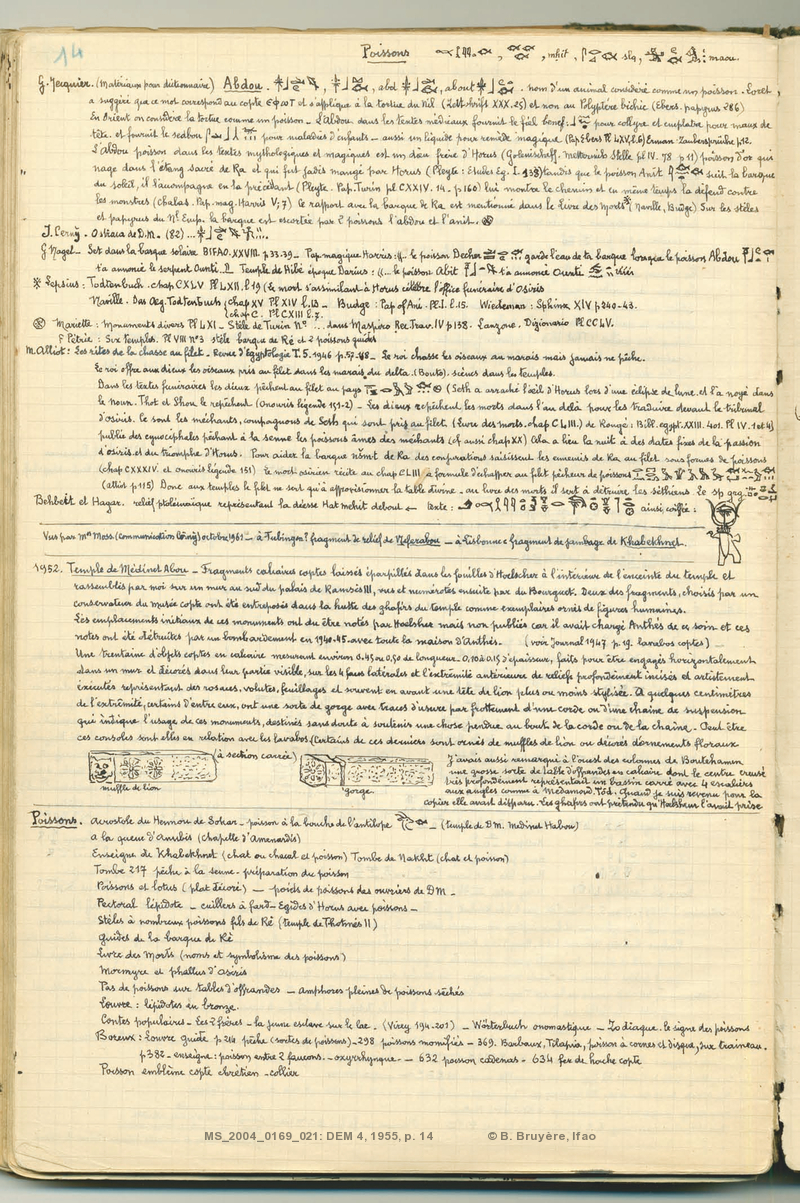 14
Poissons mhit, sla, maou.
G. Jequier. (Matériaux pour dictionnaire) Abdou. abd about . nom d'un animal considéré comme un poisson. Loret,
a suggéré que ce mot correspond au copte et s'applique à la tortue du Nil (Zeitschrift XXX.25) et non au Polyptère bichir (Ebers. papyrus 286)
En Orient on considère la tortue comme un poisson - L'abdou dans les textes médicaux fournit le fiel benef: pour collyre et emplâtre pour maux de
tête. et fournit le sedbou pour maladies d'enfants - aussi un liquide pour remède magique (Pap. Ebers Pl LXV, 8,6) Erman. Zaubersprüche p12.
L'abdou poisson dans les textes mythologiques et magiques est un dieu frère d'Horus (Golenischeff. Metternich Stelle pl. IV. 78 p 11) poisson d'or qui
nage dans l'étang sacré de Ra et qui fut jadis mangé par Horus (Pleyte: Etudes Eg. I. 138) tandis que le poisson Anit suit la barque
du soleil, il l'accompagne en la précédant (Pleyte. Pap. Turin pl CXXIV. 14. p 160) lui montre le chemin et en même temps la défend contre
les monstres (chabas. Pap. mag. Harris V; 7) Ce rapport avec la barque de Ra est mentionné dans le livre des Morts (Naville, Budge) Sur les stèles
et papyrus du Nl Emp. la barque est escortée par 2 poissons l'abdou et l'anit.
J. Cerný - Ostraca de D.M. - (82) ...
G Nagel - Set dans la barque solaire BIFAO. XXVIII p 33-39 - Pap magique Harris: le poisson Decher garde l'eau de ta barque lorsque le poisson Abdou
t'a annoncé le serpent Ounti. II Temple de Hibé époque Darius: ... le poisson Abit t'a annoncé Ounti
Lepsius: Todtenbuch. chap CXLV Pl LXII. l 19 (le mort s'assimilant à Horus célèbre l'office funéraire d'Osiris
Naville. Das Aeg. Todtenbuch (chap XV Pl XIV l. 13 - Budge: Pap of Ani. Pl. I. l. 15. Wiedeman: Sphinx XIV p 240-43.
(chap C. Pl CXIII l. 7.
Mariette: Monuments divers Pl LXI - Stèle de Turin No ... dans Maspero Rec Trav. IV p 138. Lanzone, Dizionario Pl CCLV.
F. Pétrie: Six temples. Pl VIII no 3 stèle barque de Ré et 2 poissons guides
M. Alliot: Les rites de la chasse au filet - Revue d'égyptologie T. 5. 1946 p. 57-118 - Le roi chasse les oiseaux au marais mais jamais ne pêche.
Le roi offre aux dieux les oiseaux pris au filet dans les marais du delta (Bouto). scènes dans les temples.
Dans les textes funéraires les dieux pêchent au filet au pays (Seth a arraché l'œil d'Horus lors d'une éclipse de lune. et l'a noyé dans
le noun. Thot et Shou le repêchent (Onouris légende 151-2) - Les dieux repêchent les morts dans l'au delà pour les traduire devant le tribunal
d'osiris. Ce sont les méchants, compagnons de Seth qui sont pris au filet. (Livre des morts. chap CLIII.) de Rougé: Bibl. egypt. XXIII. 401. Pl IV. 1 et 4)
publie des cynocéphales pêchant à la senne les poissons âmes des méchants (cf aussi chap XX) Cela a lieu la nuit à des dates fixes de la passion
d'osiris et du triomphe d'Horus. Pour aider la barque nšmt de Ra des conjurations saisissent les ennemis de Ra au filet sous formes de poissons
(chap CXXXIV. et onouris légende 151) le mort osirien récite au chap CLIII la formule d'échapper au filet pêcheur de poissons
(alliot p 115) Donc aux temples le filet ne sert qu'à approvisionner la table divine - au livre des morts il sert à détruire les séthiens.
Behbeit et Hagar. relief ptolémaïque représentant la déesse Hat mehit debout texte: ainsi coiffée:
Vus par Mrs Moss (communication Cérny) octobre 1962 - à Tubingen? fragment de relief de Neferabou - à Lisbonne fragment de jambage de Khabekhnet.
1952. Temple de Médinet Abou - Fragments calcaires coptes laissés éparpillés dans les fouilles d'Hoelscher à l'intérieur de l'enceinte du temple et
rassemblés par moi sur un mur au sud du palais de Ramsès III, vus et numérotés ensuite par du Bourguet. Deux des fragments, choisis par un
conservateur du musée copte ont été entreposés dans la hutte des ghafirs du temple comme exemplaires ornés de figures humaines.
Les emplacements initiaux de ces monuments ont du être notés par Hoelsher mais non publiés car il avait chargé Anthès de ce soin et ces
notes ont été détruites par un bombardement en 1940-45 avec toute la maison d'Anthès. (voir Journal 1947 p. 19. lavabos coptes) -
Une trentaine d'objets coptes en calcaire mesurant environ 0.45 ou 0,50 de longueur. 0,10 à 0,15 d'épaisseur, faits pour être engagés horizontalement
dans un mur et décorés dans leur partie visible, sur les 4 faces latérales et l'extrémité antérieure de reliefs profondément incisés et artistement
exécutés représentant des rosaces, volutes, feuillages et souvent en avant une tête de lion plus ou moins stylisée. A quelques centimètres
de l'extrémité, certains d'entre eux, ont une sorte de gorge avec traces d'usure par frottement d'une corde ou d'une chaine de suspension
qui indique l'usage de ces monuments, destinés sans doute à soutenir une chose pendue au bout de la corde ou de la chaîne. Peut être
ces consoles sont elles en relation avec les lavabos (certains de ces derniers sont ornés de muffles de lion ou décorés d'ornements floraux
(à section carrée)
muffle de lion
gorge.
J'avais aussi remarqué à l'ouest des colonnes de Boutehamon
une grosse sorte de table d'offrandes en calcaire dont le centre creusé
très profondément représentait un bassin carré avec 4 escaliers
aux angles comme à Médamoud, Tôd. Quand je suis revenu pour la
copier elle avait disparu. Les ghafirs ont prétendu qu'Hoelsher l'avait prise
Poissons. acrostole du Hennou de Sokar - poisson à la bouche de l'antilope - (temple de DM. Medinet Habou)
a la queue d'Anubis (chapelle d'Amenardis)
Enseigne de Khabekhnet (chat ou chacal et poisson) Tombe de Nakht (chat et poisson)
Tombe 217 pêche à la senne - préparation du poisson
Poissons et lotus (plat décoré) - poids de poissons des ouvriers de DM -
Pectoral lépidote - cuillers à fard - Egides d'Horus avec poissons -
Stèles à nombreux poissons fils de Ré (temple de Thotmès II)
guides de la barque de Ré
Livre des Morts (noms et symbolisme des poissons)
Mormyre et phallus d'Osiris
Pas de poissons sur tables d'offrandes - amphores pleines de poissons séchés
Louvre: lépidotes en bronze.
Contes populaires - Les 2 frères - la jeune esclave sur le lac - (Virey 194-201) - Wörterbuch onomastique - Zodiaque. le signe des poissons
Boreux: Louvre guide p. 214 pêche (sortes de poissons) - 298 poissons momifiés - 369. Barbeaux, Tilapia, poisson à cornes et disque, sur traineau.
p. 382 - enseigne: poisson entre 2 faucons. - oxyrrhynque. - 632 poisson cadenas - 634 fer de hache copte
Poisson emblème copte chrétien - collier
MS_2004_0169_021: DEM 4, 1955, p. 14 © B. Bruyère, Ifao